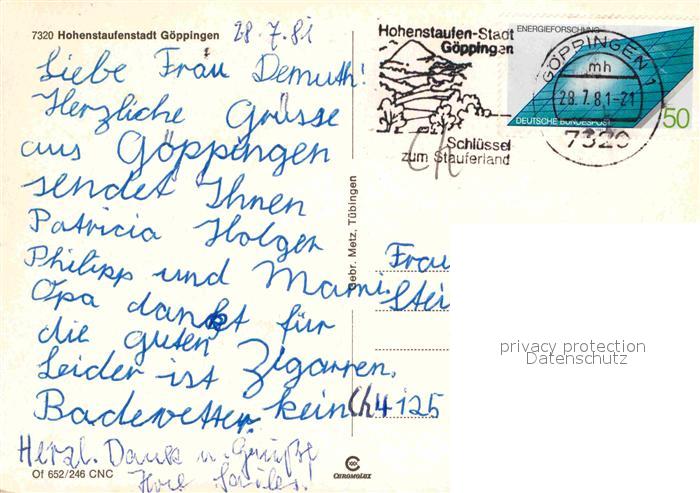 7320 Hohenstaufenstadt Göppingen
28.7.81
Liebe Frau Demuth!
Herzliche Grüsse
aus Göppingen
sendet Ihnen
Patricia Holger
Philipp und Mami.
Opa dankt für
die guten
Zigarren.
Leider ist
Badewetter. kein
Herzl. Dank u. Grüße
Ihre
Of 652/246 CNC
Gebr. Metz, Tübingen
CHROMOLUX
Hohenstaufen-Stadt
Göppingen
Schlüssel
zum Stauferland
ENERGIEFORSCHUNG
DEUTSCHE BUNDESPOST
50
GÖPPINGEN 1
mh
28.7.81-21
7320
Ch
Frau
Stei
Ch 4125
privacy protection
Datenschutz